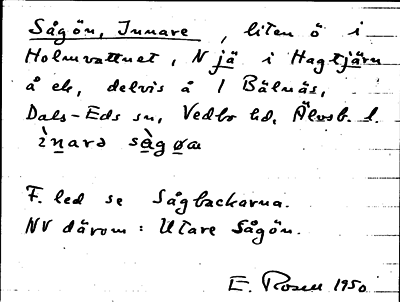 Sågön, Innare, liten ö i
Holmvattnet, N jä i Hagtjärn
å ek, delvis å 1 Bälnäs,
Dals-Eds sn, Vedbo hd, Älvsb. l.
ìnarə sàgøa
F. led se Sågbackarna.
NV därom: Utare Sågön.
E. Rosell 1950